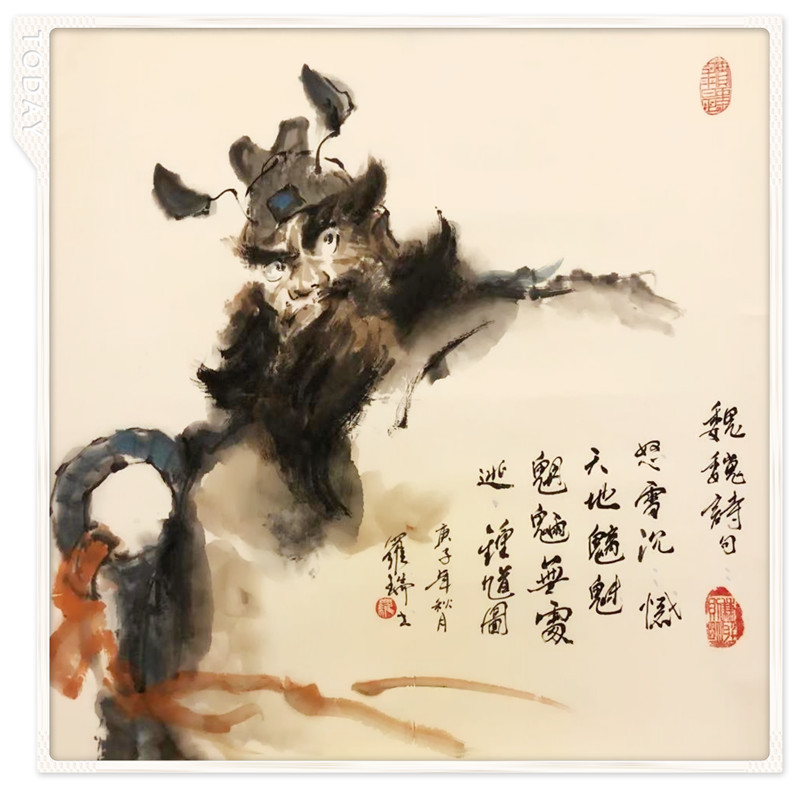 TODAY
魏魏詩句
怒雷沉憾
天地魑魅
魍魎無處
逃 鍾馗圖
庚子年秋月
羅